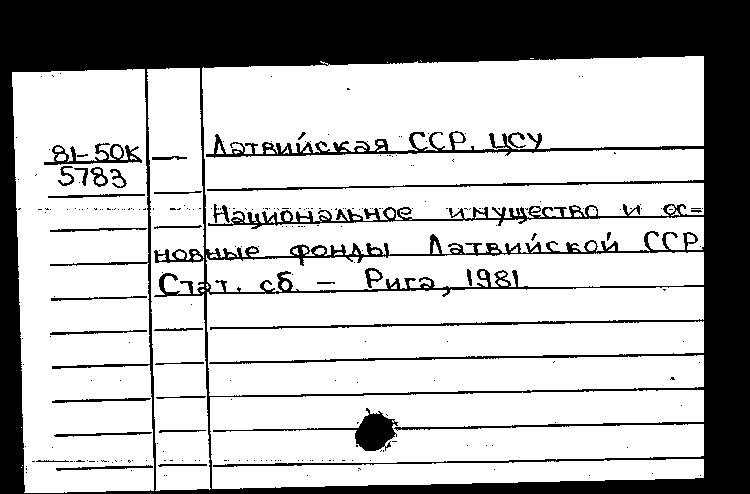 81-50К — Латвийская ССР. ЦСУ
5783
Национальное имущество и ос=
новные фонды Латвийской ССР.
Стат. сб. – Рига, 1981.